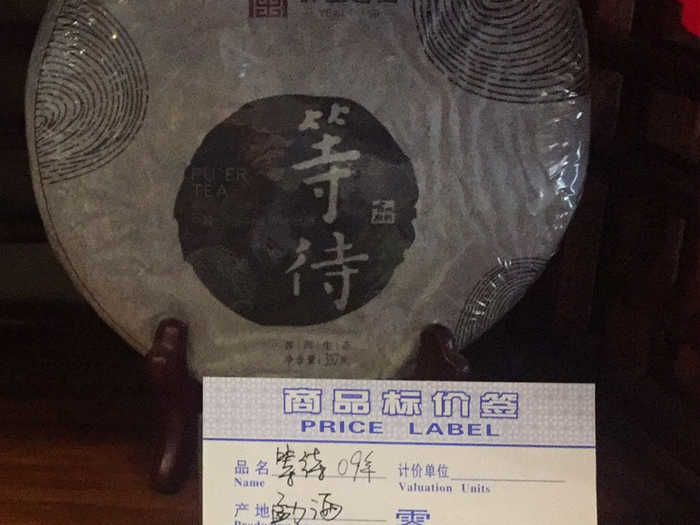 PU'ER
TEA
等
待
普洱生态
净含量:357克
商品标价签
PRICE LABEL
品名 等待 09年 计价单位
Name Valuation Units
产地 勐海
零